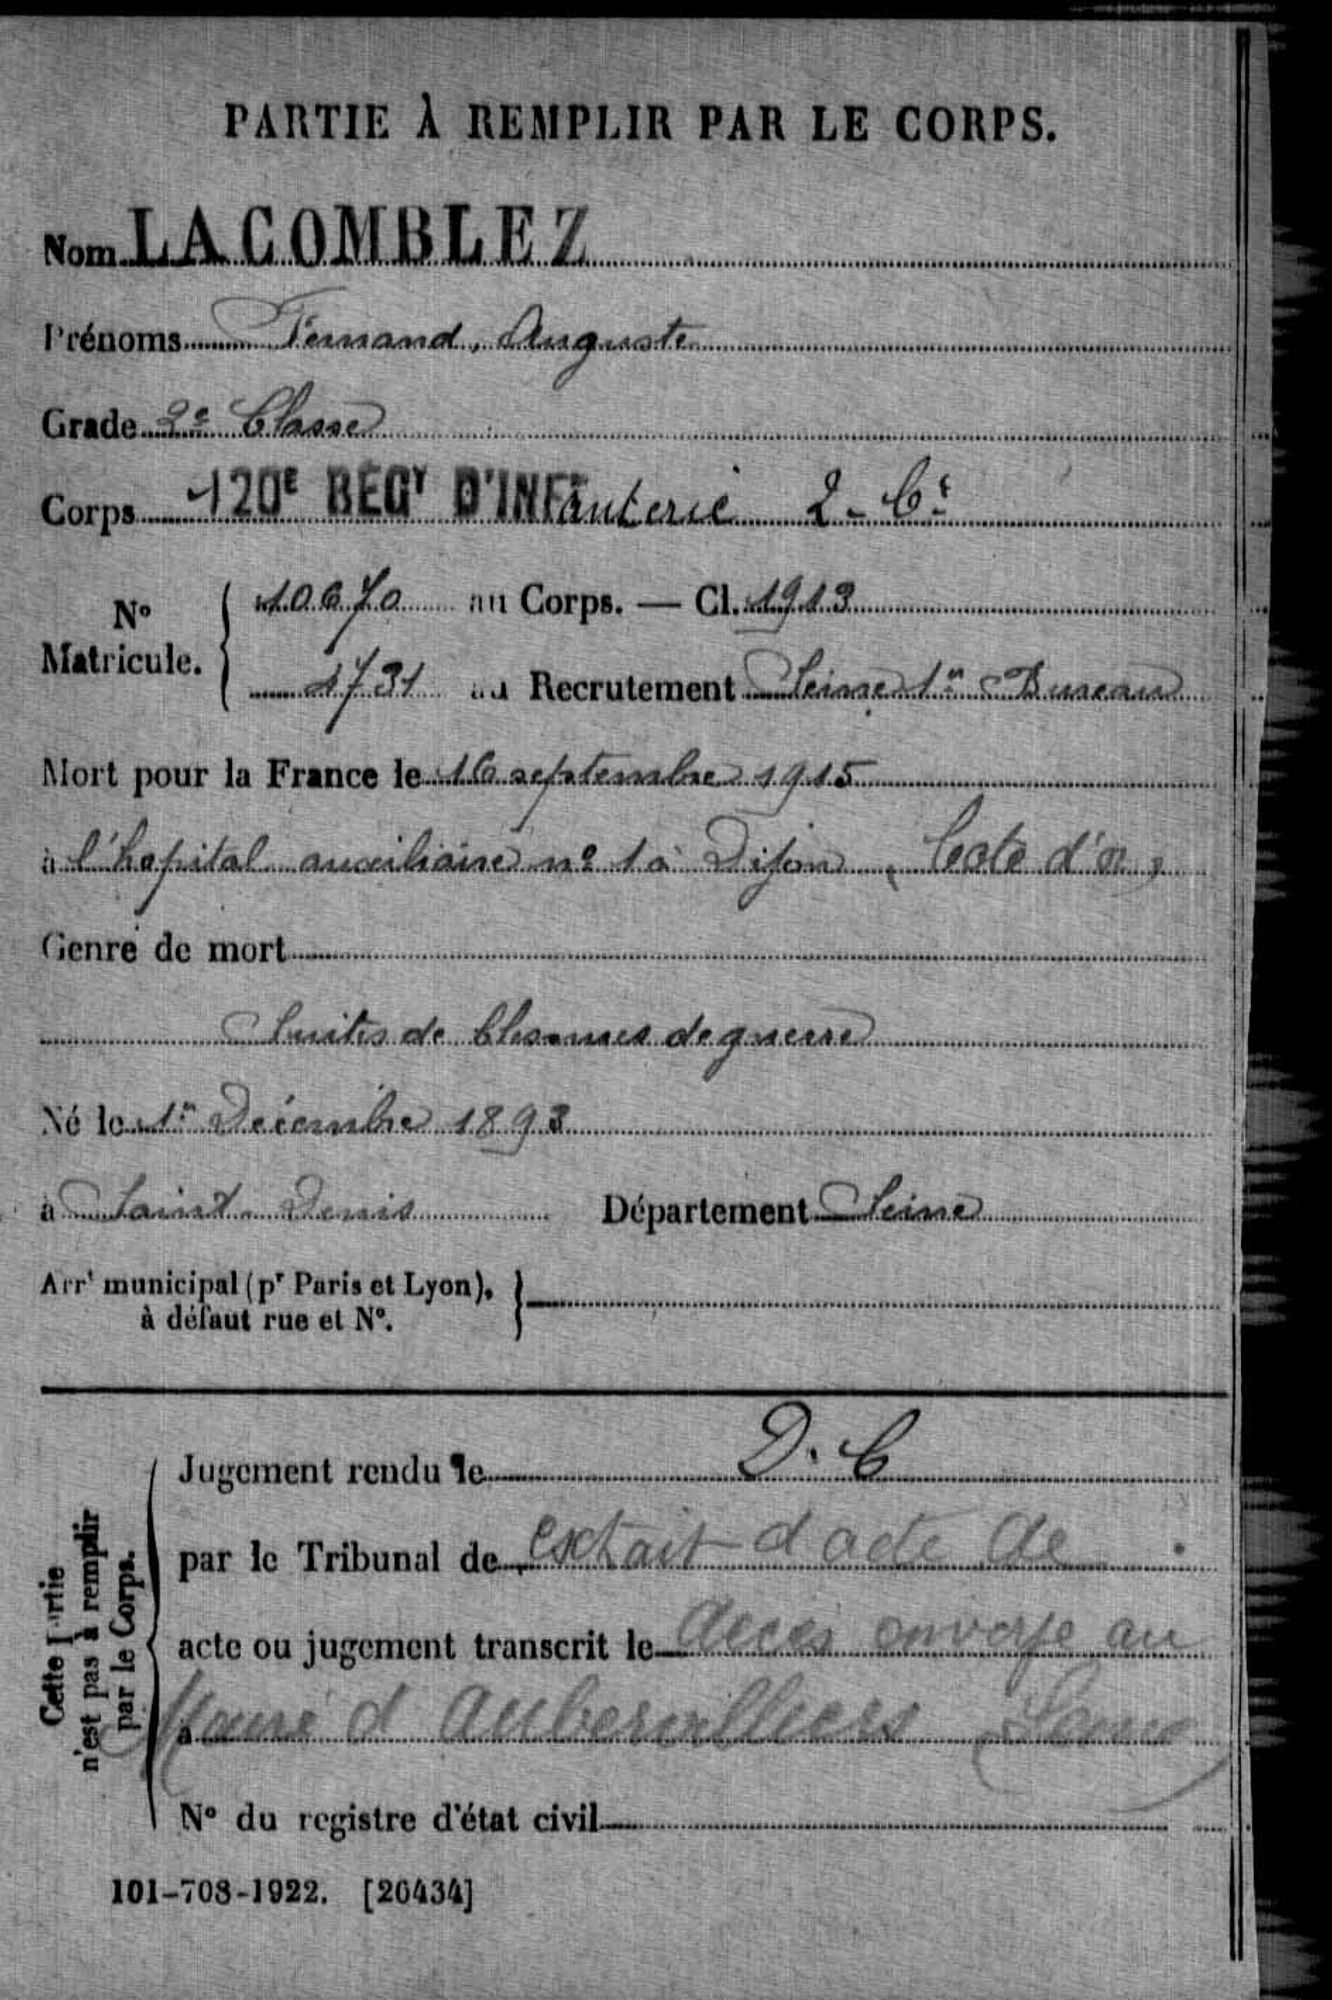 PARTIE À REMPLIR PAR LE CORPS.
Nom LACOMBLEZ
Prénoms Fernand, Auguste
Grade 2e Classe
Corps 120E REGT D'INFanterie 2 - Cie
No Matricule. { 10670 au Corps. — Cl. 1913
1731 au Recrutement Seine 1er Bureau
Mort pour la France le 16 septembre 1915
à l'hopital auxiliaire no 1 à Dijon (Cote d'or)
Genre de mort
Suites de blessures de guerre
Né le 1er Décembre 1893
à Saint-Denis Département Seine
Arrt municipal (pr Paris et Lyon), à défaut rue et No.
Cette Partie n'est pas à remplir par le Corps.
Jugement rendu le D. C
par le Tribunal de extrait d acte de
acte ou jugement transcrit le décès envoyé au
à Maire d Aubervilliers (Seine)
No du registre d'état civil
101-708-1922. [26434]